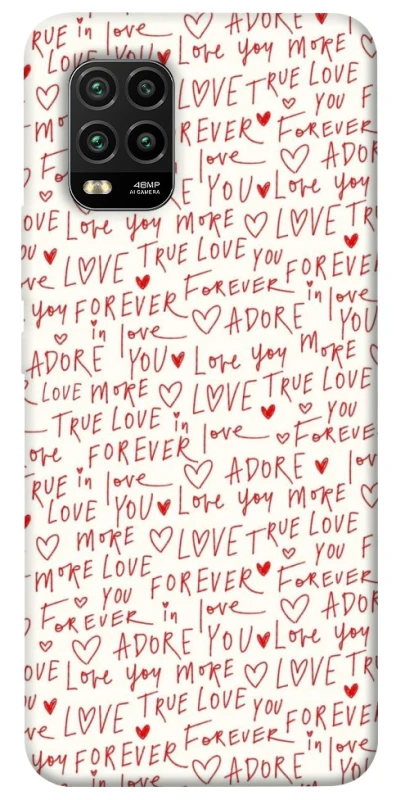 RUE in love ADORE
LOVE YOU Love you MORE
LOVE TRUE LOVE
YOU F
48MP
AI CAMERA
MORE
REVER FOREVER
love ADOR
E YOU Love you
OVE Love you MORE LOVE TR
LOVE TRUE LOVE YOU FOREVER
you FOREVER FOREVER in love
in love ADORE YOU
ADORE YOU Love you MORE
LOVE MORE LOVE TRUE LOVE
TRUE LOVE in love YOU
ove FOREVER FOREVE
RUE in love ADORE lov
LOVE YOU Love you MORE
MORE LOVE TRUE LOVE
MORE LOVE YOU F
YOU FOREVER FOREVER
FOREVER in love ADOR
ADORE YOU Love you
OVE Love you MORE LOVE TR
LOVE TRUE LOVE YOU FOREVER
you FOREVER FOREVER in love
in love ADORE YOU